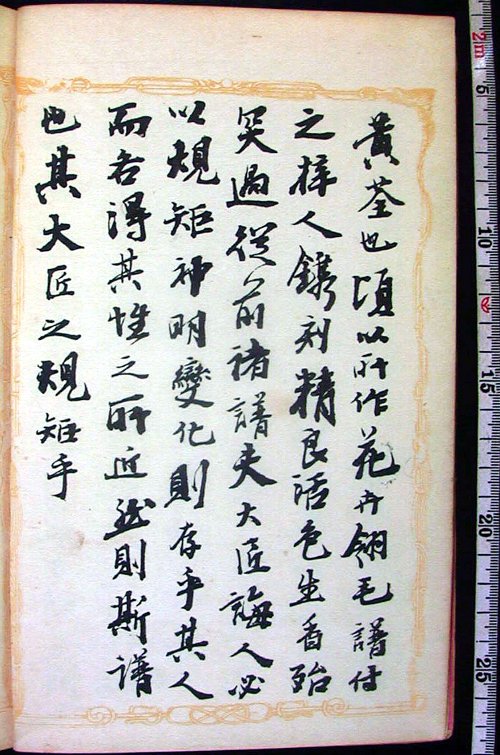 黄荃也頃以所作花卉翎毛譜付
之梓人鐫刻精良活色生香殆
突過從前諸譜夫大匠誨人必
以規矩神明變化則存乎其人
而各得其性之所近然則斯譜
也其大匠之規矩乎
2m
5
10
15
20
25